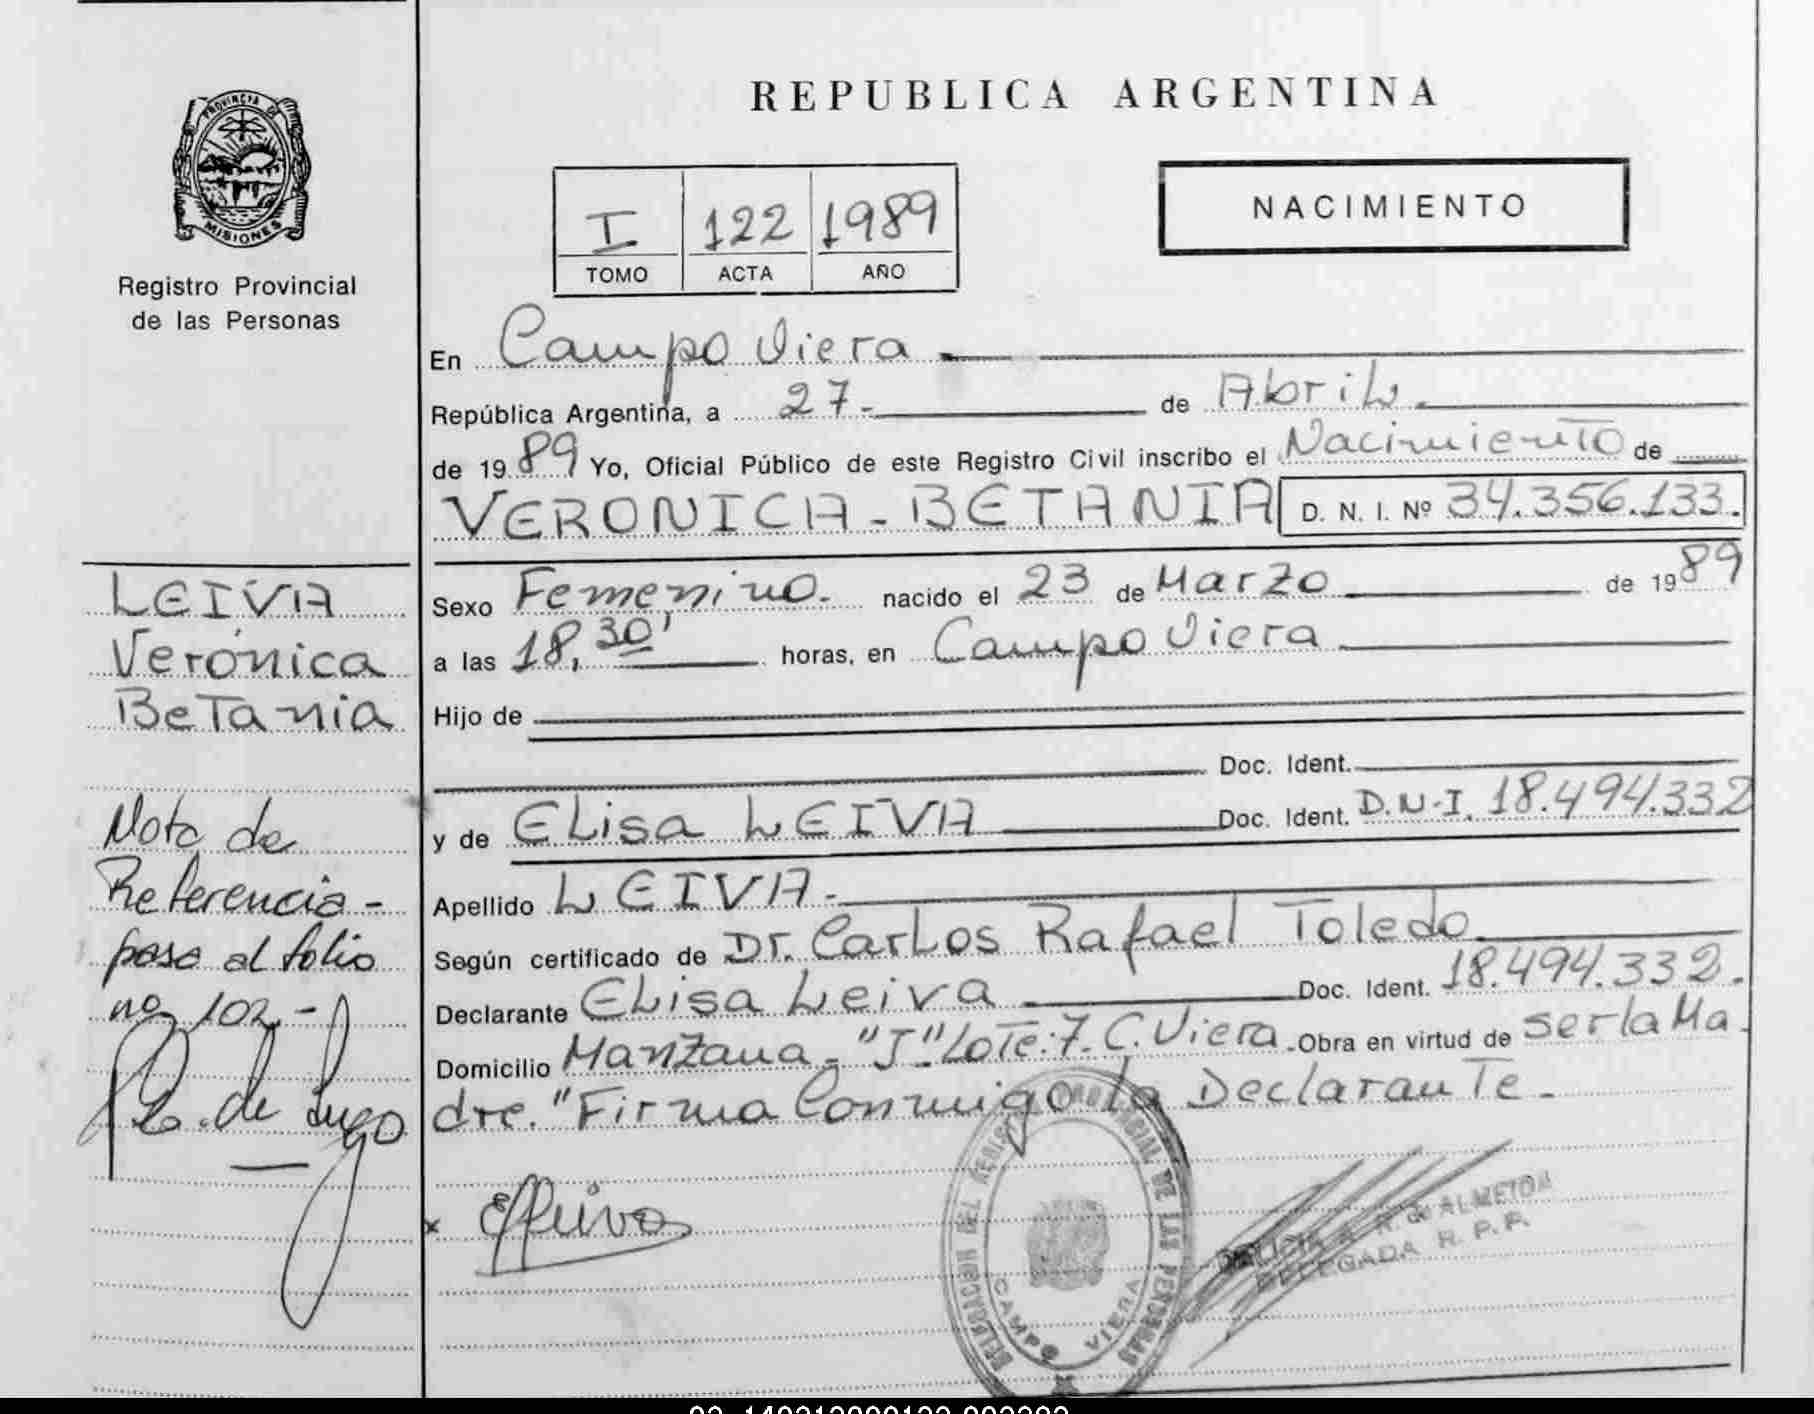 PROVINCIA DE
MISIONES
Registro Provincial
de las Personas
LEIVA
Verónica
BeTania
Nota de
Referencia -
pasa al folio
no 102 -
REPUBLICA ARGENTINA
I 122 1989
TOMO ACTA AÑO
NACIMIENTO
En Campo Viera
República Argentina, a 27- de AbriL.
de 19 89 Yo, Oficial Público de este Registro Civil inscribo el NacimienTo de
VERONICA - BETANIA D. N. I. Nº 34.356.133.
Sexo Femenino. nacido el 23 de Marzo de 19 89
a las 18,30' horas, en Campo Viera
Hijo de
Doc. Ident.
y de ELisa LEIVA Doc. Ident. D.N.I. 18.494.332
Apellido LEIVA-
Según certificado de Dr. CarLos Rafael Toledo
Declarante ELisa Leiva Doc. Ident. 18.494.332.
Domicilio Manzana - "J" LoTe: 7. C. Viera - Obra en virtud de ser la Ma
dre. "Firma Conmigo la DeclaranTe -
x
DELEGACION DEL REGISTRO PROVINCIAL DE LAS PERSONAS
CAMPO VIERA
R. de ALMEIDA
DELEGADA R. P. P.